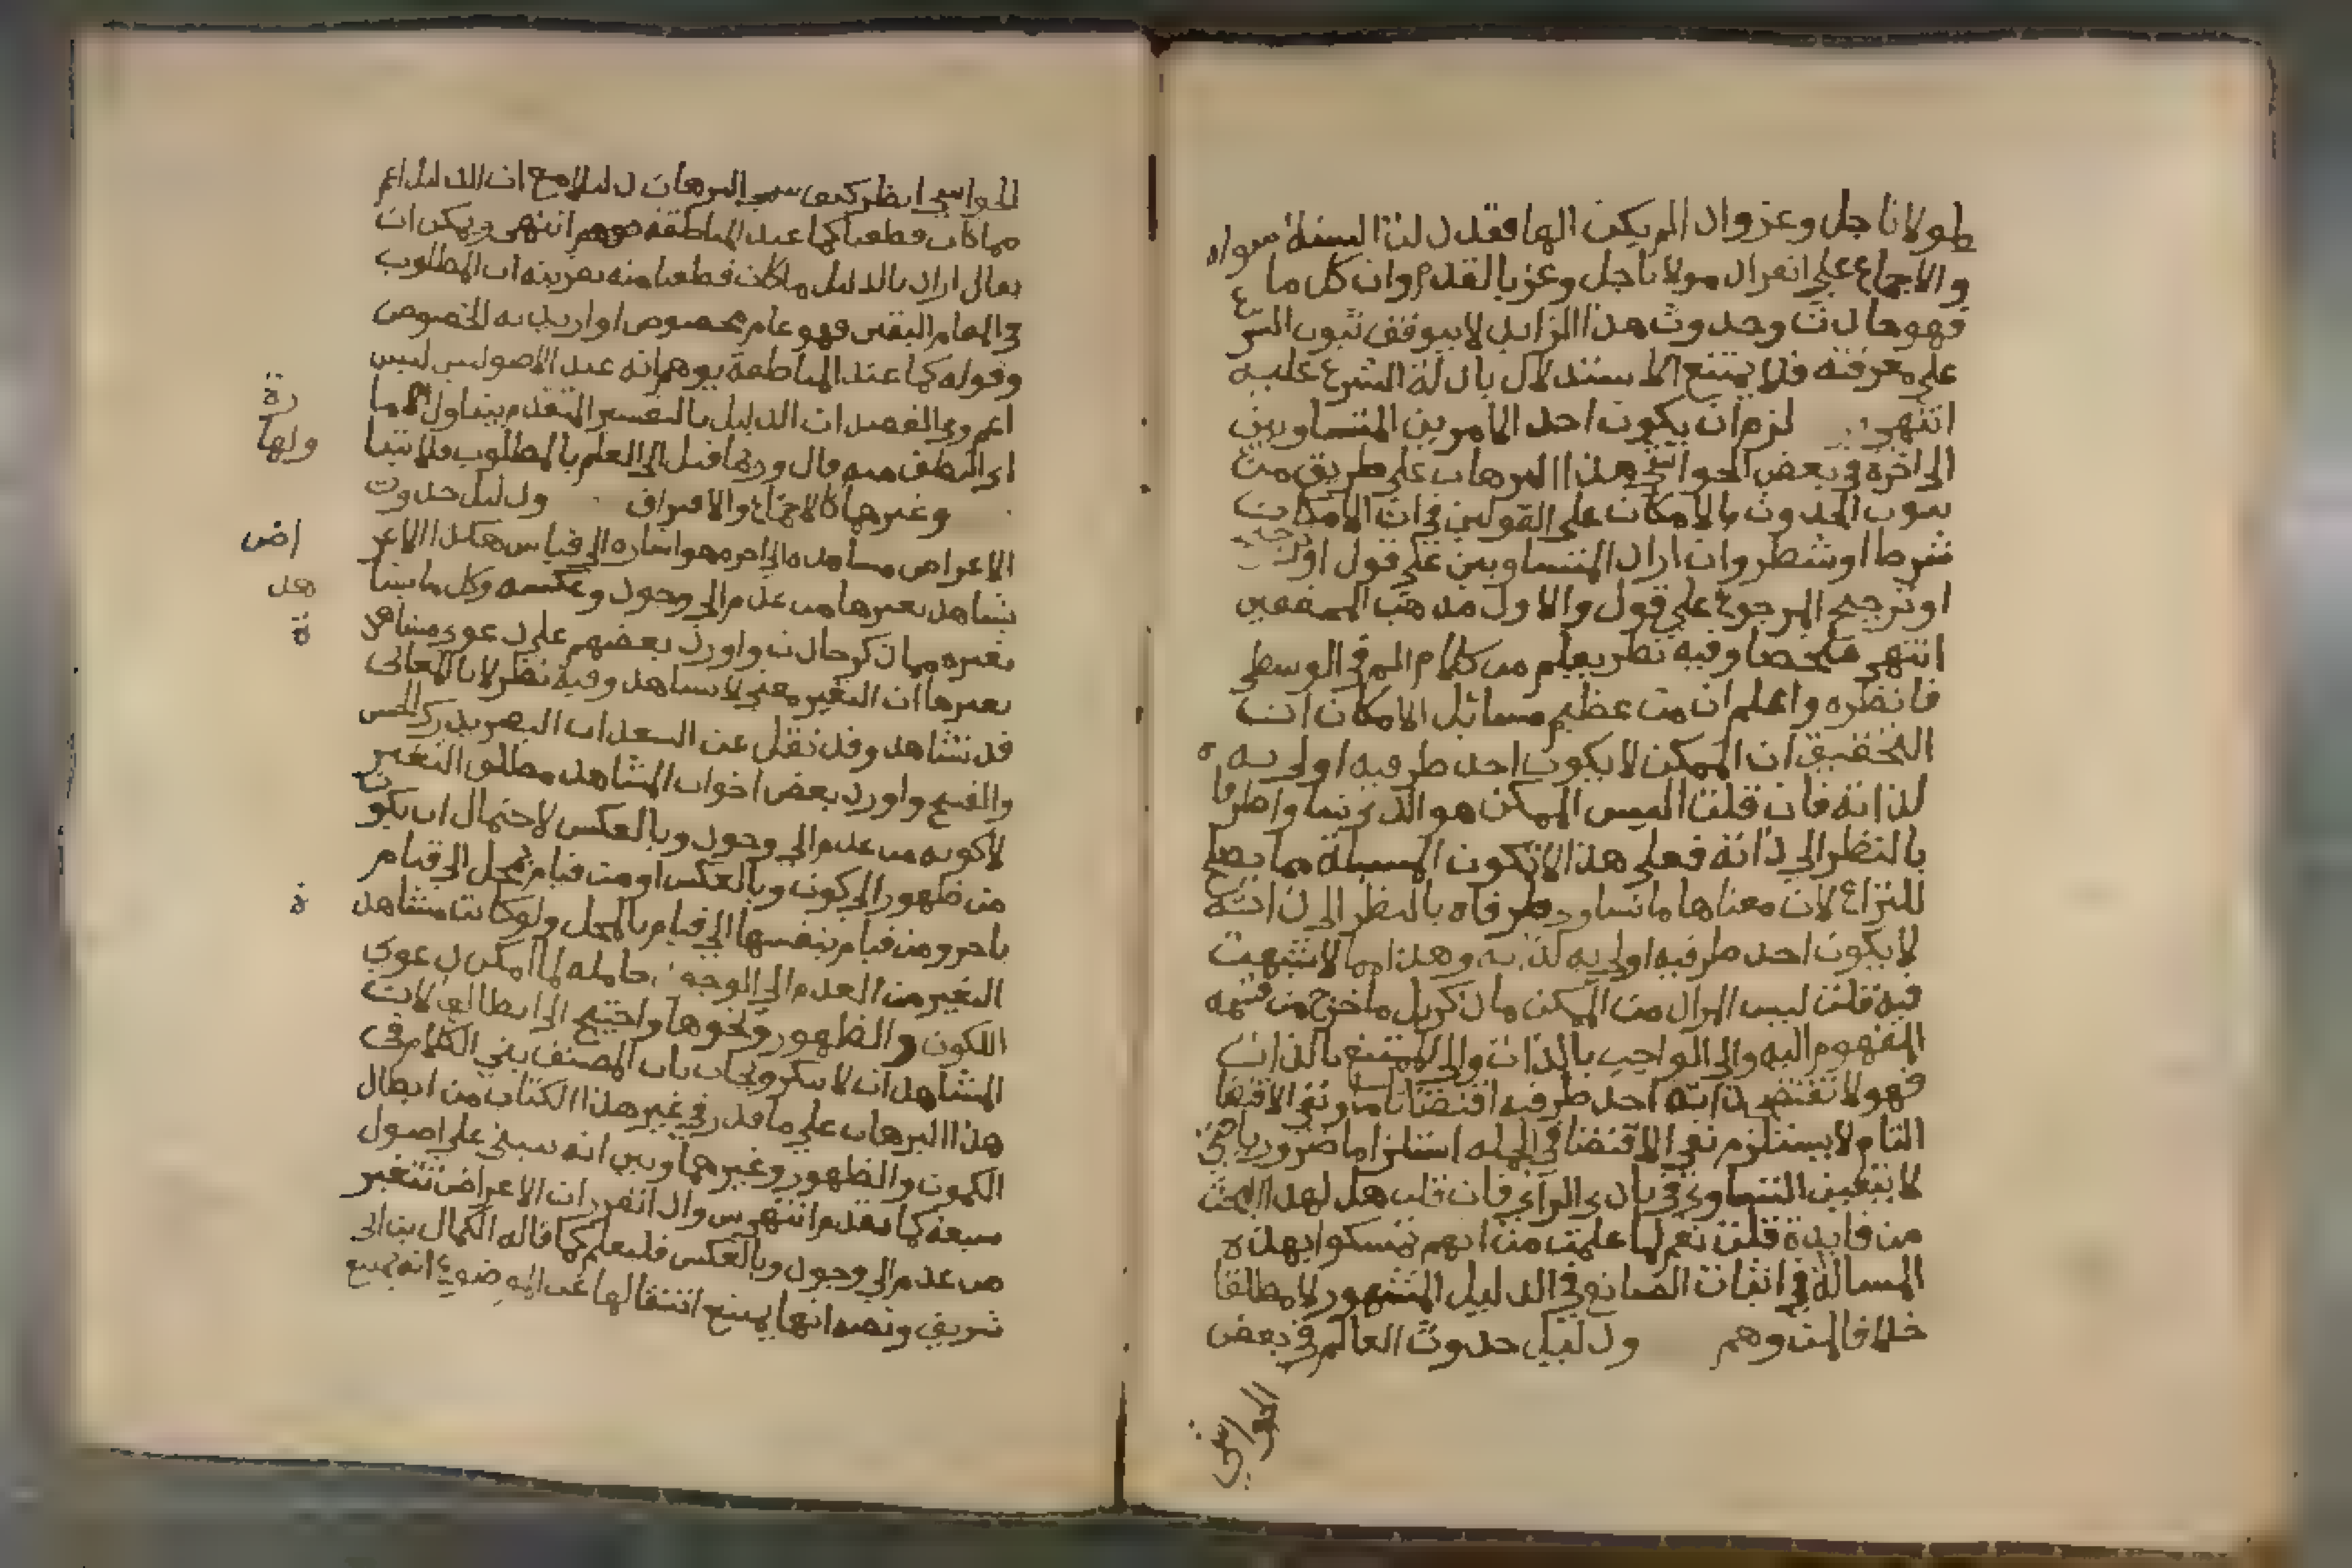 مولانا جل وعز وان لم يكن الها فقد دلت السنة سواه
والاجماع على انفراد مولانا جل وعز بالقدم وان كل ما
فهو حادث وحدوث هذا الزايد لا يتوقف ثبوت الشرع
على معرفته فلا يمتنع الاستدلال بادلة الشرع عليه
انتهى لزم ان يكون احد الامرين المتساويين
الى اخره في بعض الحواشي هذا البرهان على طريق من
الحدوث بالامكان على القولين في ان الامكان
شرط او شطر وان اراد المتساويين على قول او ترجيح
او ترجيح المرجوح على قول والاول مذهب المحققين
انتهى ملخصا وفيه نظر يعلم من كلام المص في الوسطى
فانظره واعلم ان من عظيم مسائل الامكان ان
التحقيق ان الممكن لا يكون احد طرفيه اولى به
لذاته فان قلت اليس الممكن هو الذي تساوا طرفا
بالنظر الى ذاته فعلى هذا لا تكون المسئلة مما يصلح
للنزاع لان معناها ما تساوى طرفاه بالنظر الى ذاته
لا يكون احد طرفيه اولى به لذاته وهذا مما لا شبهت
فيه قلت ليس المراد من الممكن ما ذكر بل ما خرج من قسمه
المفهوم اليه والى الواجب بالذات والى الممتنع بالذات
فهو لا تقتضي ذاته احد طرفيه اقتضا تاما ونفي الاقتضا
التام لا يستلزم نفي الاقتضا في الجمله استلزاما ضروريا حتى
لا يتعين التساوي في بادي الراي فان قلت هل لهذا البحث
من فايدة قلت نعم لما علمت من انهم تمسكوا بهذه
المسالة في اثبات الصانع في الدليل المشهور لا مطلقا
خلافا لمن وهم ودليل حدوث العالم في بعض
الحواشي
الحواشي انظر كيف سمى البرهان دليلا مع ان الدليل اعم
مما كان قطعيا كما عند المناطقة انتهى ويمكن ان
يقال اراد بالدليل ما كان قطعيا منه بقرينة ان المطلوب
في المقام اليقين فهو عام مخصوص او اريد به الخصوص
وقوله كما عند المناطقة يوهم انه عند الاصوليين ليس
اعم وفي الفصد ان الدليل بالتفسير المتقدم يتناول الامارة
اي الظني منه قال وربما قيل الى العلم بالمطلوب فلا يتناولها
وغيرهما كالاجتماع والافتراق ودليل حدوث
الاعراض مشاهده الى اخره هو اشاره الى قياس هكذا الاعراض
شاهد تغيرها من عدم الى وجود وعكسه وكل ما يشاهد
تغيره مما ذكر حادث واورد بعضهم على دعوى مشاهدة
تغيرها ان التغير معنى لا يشاهد وفيه نظر لان المعاني
قد تشاهد وقد نقل عن السعد ان البصر يدرك الحسن
والقبح واورد بعض اخوان المشاهد مطلق التغير
لا كونه من عدم الى وجود وبالعكس لاحتمال ان يكون
من ظهور الى كون وبالعكس او من قيام بمحل الى قيام
باخر ومن قيام بنفسها الى قيام بالمحل ولو كانت مشاهدة
التغير من العدم الى الوجه حاصله لما امكن دعوى
الكون والظهور ونحوها واحتيج الى ابطالها لان
المشاهد ان لا ينكر ويجاب بان المصنف بنى الكلام في
هذا البرهان على ما قدر في غير هذا الكتاب من ابطال
الكمون والظهور وغيرهما وبين انه سبنى على اصول
سبعة كما تقدم انتهى س واذا تقرر ان الاعراض تتغير
من عدم الى وجود وبالعكس فليعلم كما قاله الكمال بن ابي
شريف ونصه انها يمتنع انتقالها عن الموضوع انه يمتنع